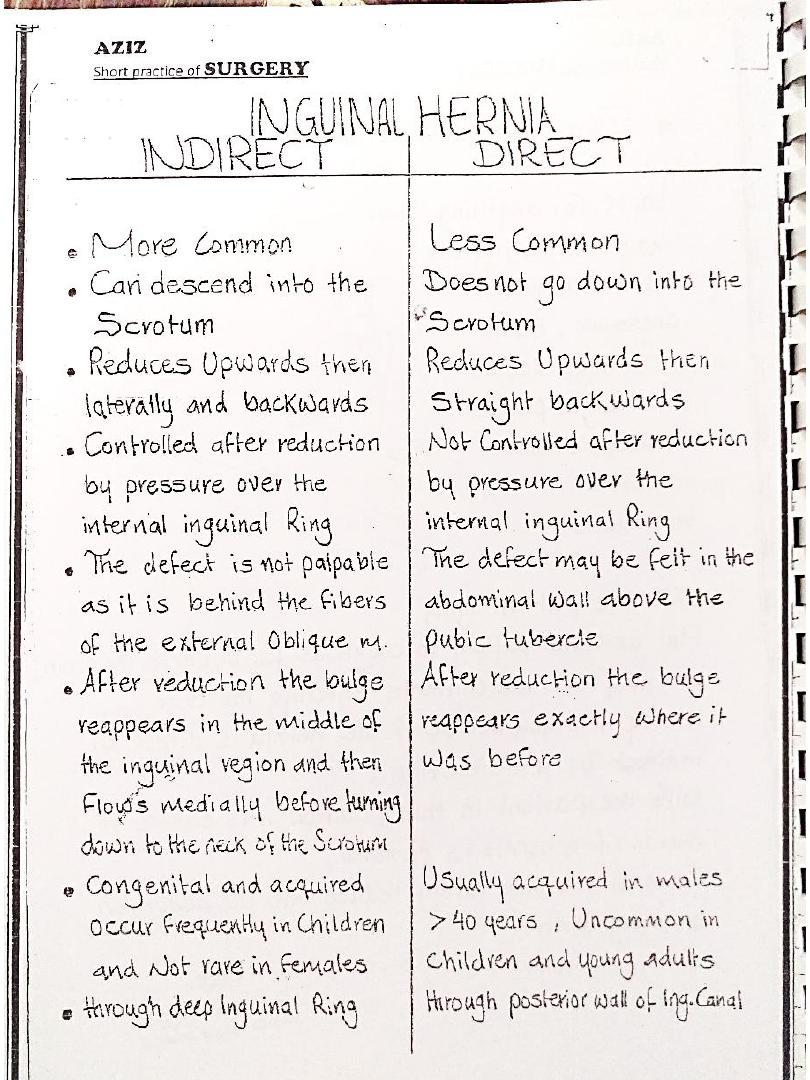 AZIZ
Short practice of SURGERY
INGUINAL HERNIA
INDIRECT
• More Common
• Can descend into the
Scrotum
• Reduces Upwards then
laterally and backwards
• Controlled after reduction
by pressure over the
internal inguinal Ring
• The defect is not palpable
as it is behind the fibers
of the external Oblique m.
• After reduction the bulge
reappears in the middle of
the inguinal region and then
Flows medially before turning
down to the neck of the Scrotum
• Congenital and acquired
occur frequently in Children
and Not rare in females
• through deep Inguinal Ring
DIRECT
Less Common
Does not go down into the
Scrotum
Reduces Upwards then
Straight backwards
Not Controlled after reduction
by pressure over the
internal inguinal Ring
The defect may be felt in the
abdominal wall above the
pubic tubercle
After reduction the bulge
reappears exactly where it
was before
Usually acquired in males
>40 years , Uncommon in
Children and young adults
through posterior wall of Ing. Canal